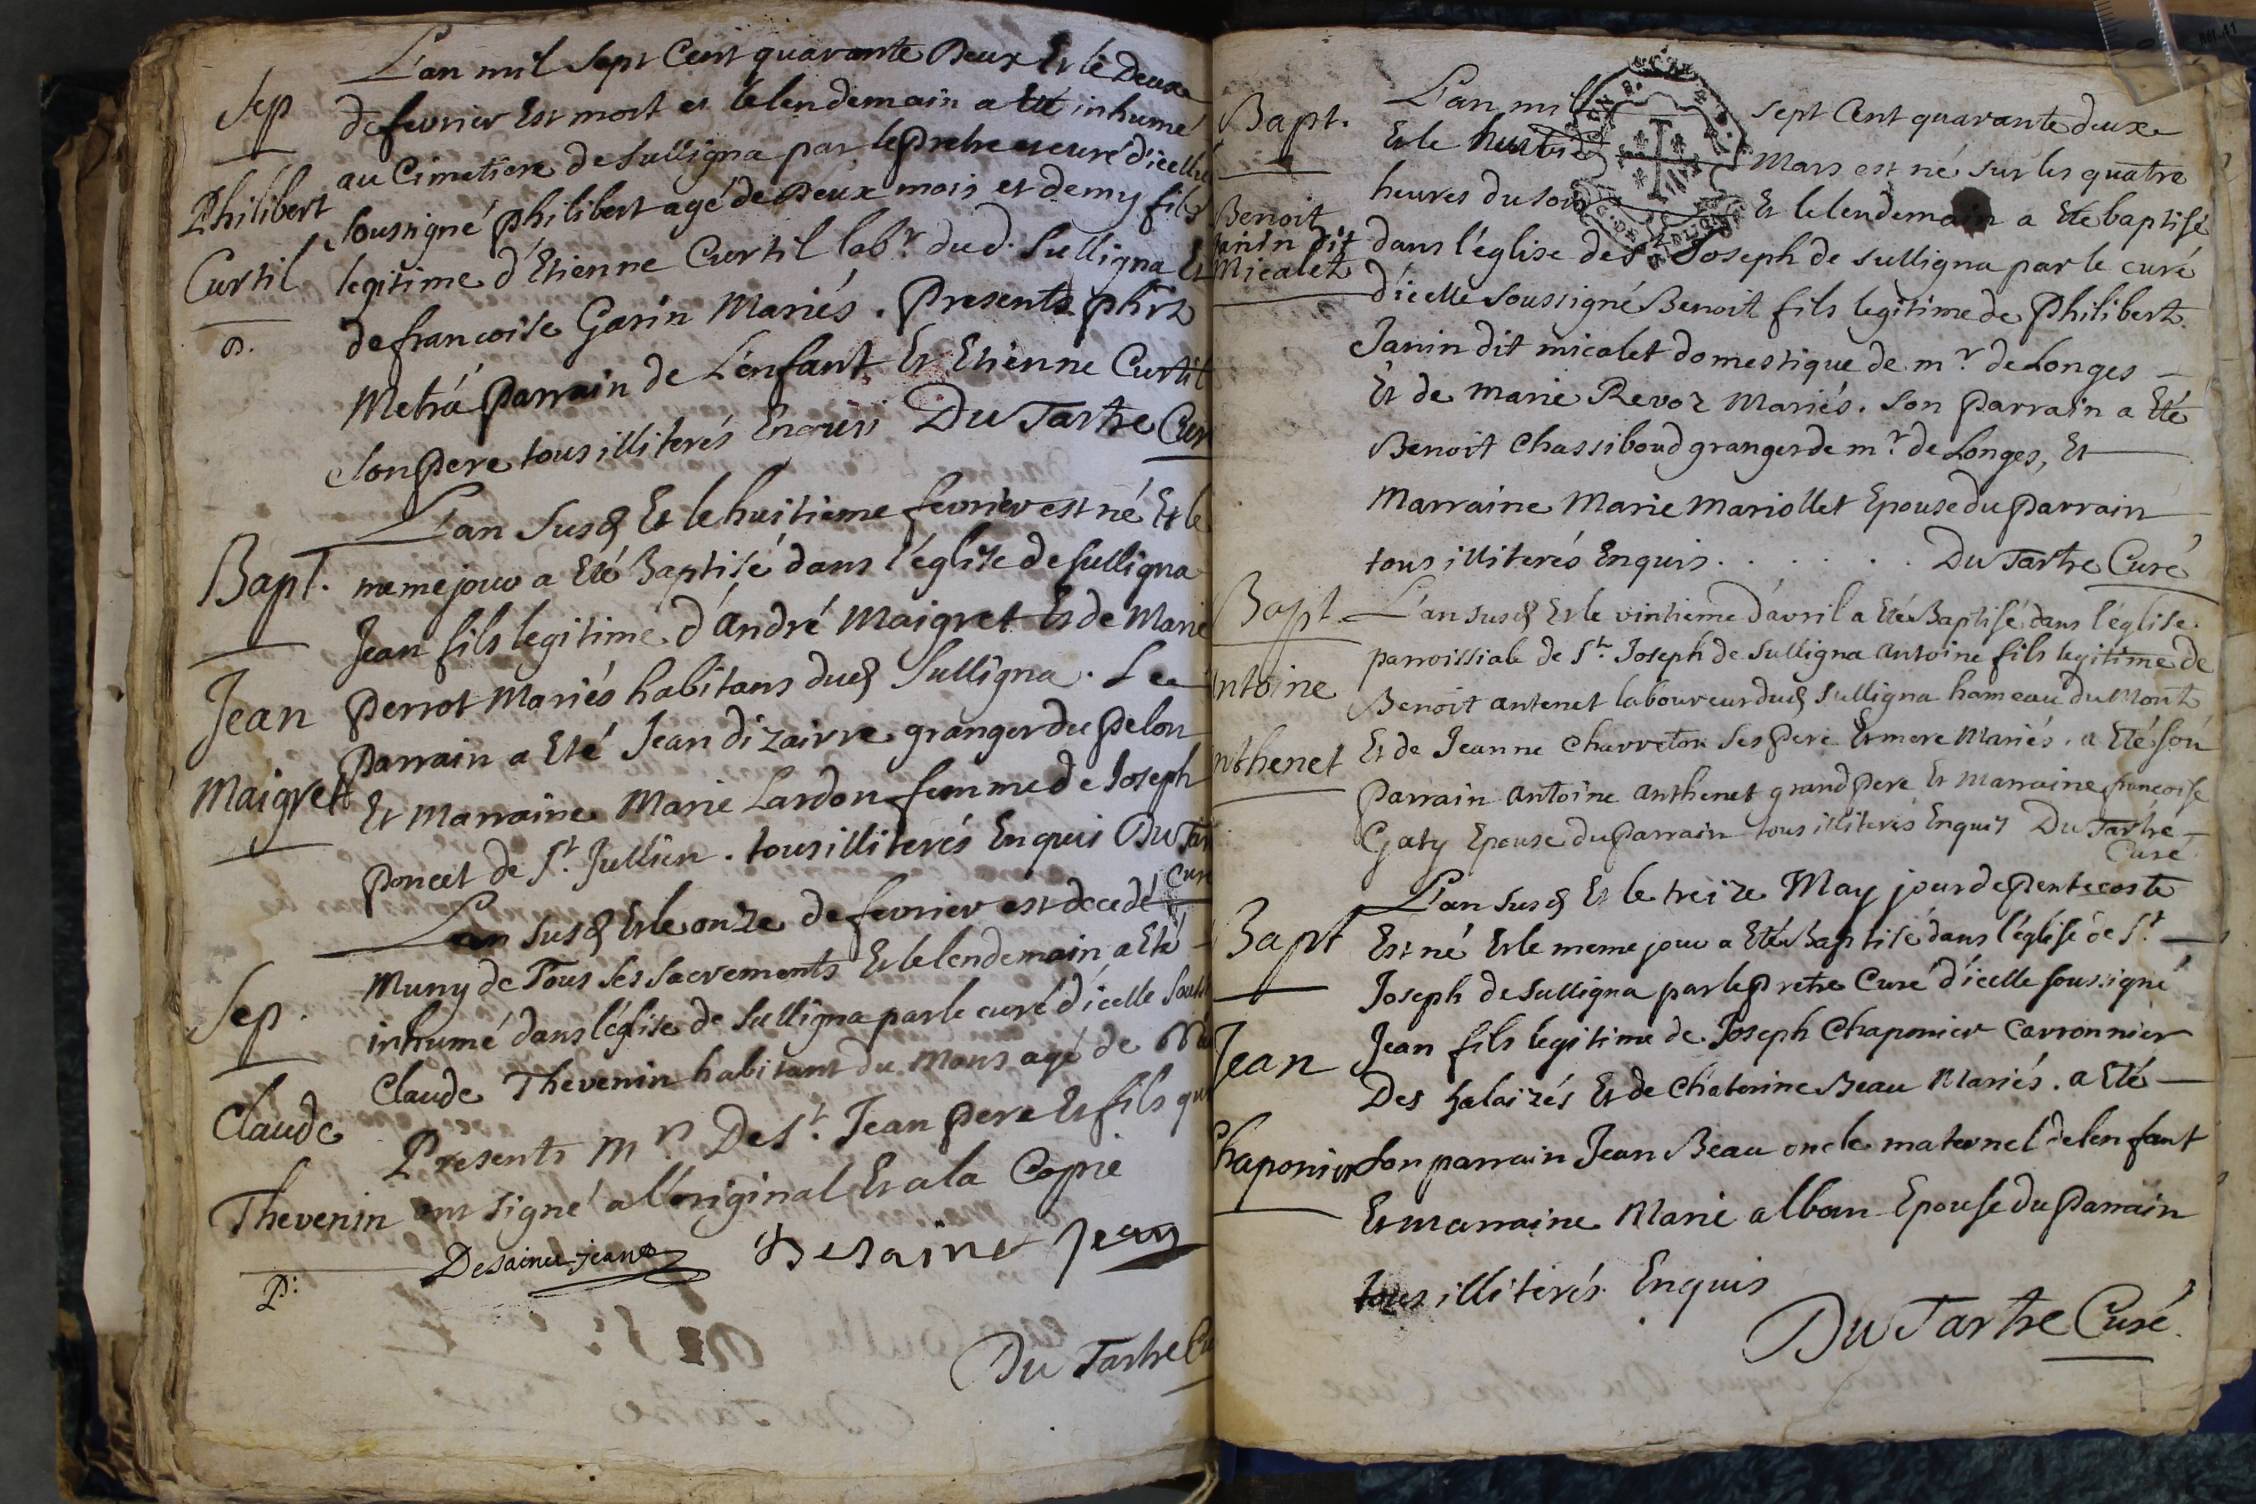 L'an mil sept Cent quarante Deux Et le Deuxe
Sep
de fevrier Est mort et le lendemain a Eté inhumé
au Cimetiere de Sulligna par le Pretre et curé d'icelle
Philibert
soussigné Philibert agé de Deux mois et demy fils
Curtil
legitime d'Etienne Curtil labr. dud. Sulligna Et
de francoise Garin Mariés. Presents
Metrá Parrain de L'enfant Et Etienne Curtil
son Pere tous illiterés Enquis Du Tartre Cur
L'an Susd Et le huitieme fevrier est né Et le
Bapt.
meme jour a Eté Baptisé dans l'église de Sulligna
Jean fils legitime d'André Maigret Et de Marie
Jean
Perrot Mariés habitans dud Sulligna. Le
Parrain a Eté Jean dizairre granger du Pelon
Maigret
Et Marraine Marie Lardon femme de Joseph
Poncet de St. Jullien. tous illiterés Enquis Du Tar
Cure
L'an Susd Et le onze de fevrier est decedé
muny de Tous ses sacrements Et le lendemain a Eté
Sep.
inhumé dans l'église de Sulligna par le curé d'icelle
Claude Thevenin habitant du Mons agé de
Claude
Presents De St. Jean Pere Et fils qui
Thevenin
ont signé a l'original Et a la Copie
P:
Desaint-jean Desaint Jean
Du Tartre Cu
Bapt.
L'an mil sept Cent quarante deux
Et le Mars est né sur les quatre
heures du soir Et le lendemain a Eté baptisé
Benoit
Janin dit
Micalet
dans l'église de St Joseph de Sulligna par le curé
d'icelle Soussigné Benoit fils legitime de Philibert
Janin dit micalet domestique de mr. de Longes
Et de Marie Revoz Mariés. Son Parrain a Eté
Benoit Chassiboud granger de mr. de Longes, Et
Marraine Marie Mariollet Epouse du Parrain
tous illiterés Enquis. . . . . . Du Tartre Curé
Bapt
L'an susd Et le vintieme d'avril a Eté Baptisé dans l'église
parroissiale de St. Joseph de Sulligna Antoine fils legitime de
ntoine
Benoit antenet laboureur dud Sulligna hameau du Mont
nthenet
Et de Jeanne Charreton ses Pere Et mere Mariés. a Eté son
Parrain Antoine Anthenet grand Pere Et Marraine francoise
Gaty Epouse du Parrain tous illiterés Enquis Du Tartre
Curé
L'an susd Et le treize May jour de Pentecoste
Bapt
Est né Et le meme jour a Eté Baptisé dans l'église de St.
Joseph de Sulligna par le Pretre Curé d'icelle soussigné
Jean
Jean fils legitime de Joseph Chaponier Carronnier
Des halaizés Et de Chaterine Beau Mariés. a Eté
Chaponier
son parrain Jean Beau oncle maternel de l'enfant
Et marraine Marie alban Epouse du Parrain
tous illiterés Enquis
Du Tartre Curé.